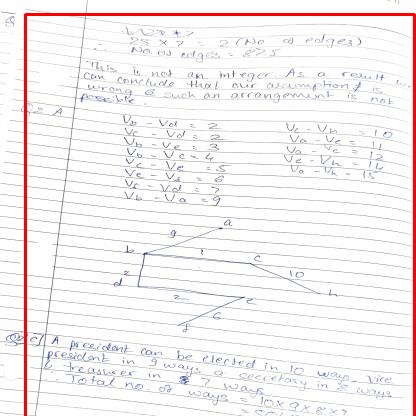 25 x 7 = 2 (No. of edges)
∴ No. of edges = 87.5
This is not an integer. As a result
can conclude that our assumption is
wrong & such an arrangement is not
possible.
A
Vb - Vd = 2
Vc - Vd = 2
Vb - Ve = 3
Vb - Vc = 4
Vc - Ve = 5
= 6
- Vd = 7
Vb - Va = 9
Vc - Vh = 10
Va - Ve = 11
Va - Vc = 12
Ve - Vh = 14
Va - Vh = 15
a
9
b
1
c
2
10
d
2
e
h
6
f
c) A president can be elected in 10 ways, vice
president in 9 ways a secretary in 8 ways
& treasurer in 7 ways
∴ Total no. of ways = 10 x 9 x 8 x 7